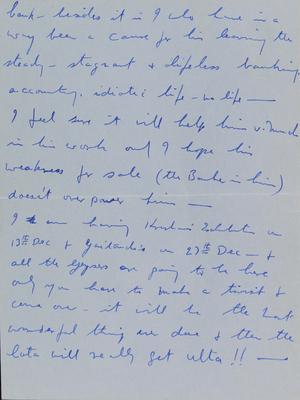 bank - besides it is I who have in a
way been a cause for his leaving the
steady - stagnant & lifeless banking
accounting. idiotic life - no life —
I feel sure it will help him v. much
in his work only I hope his
weakness for sale (the Banker in him)
doesn't over power him —
I am having Krishna's Exhibition on
13th Dec & on 27th Dec — &
all the gypsies are going to be here
only you have to make a tour it &
come over - it will be the most
wonderful thing ever done & then the
lota will really get ulta!! —